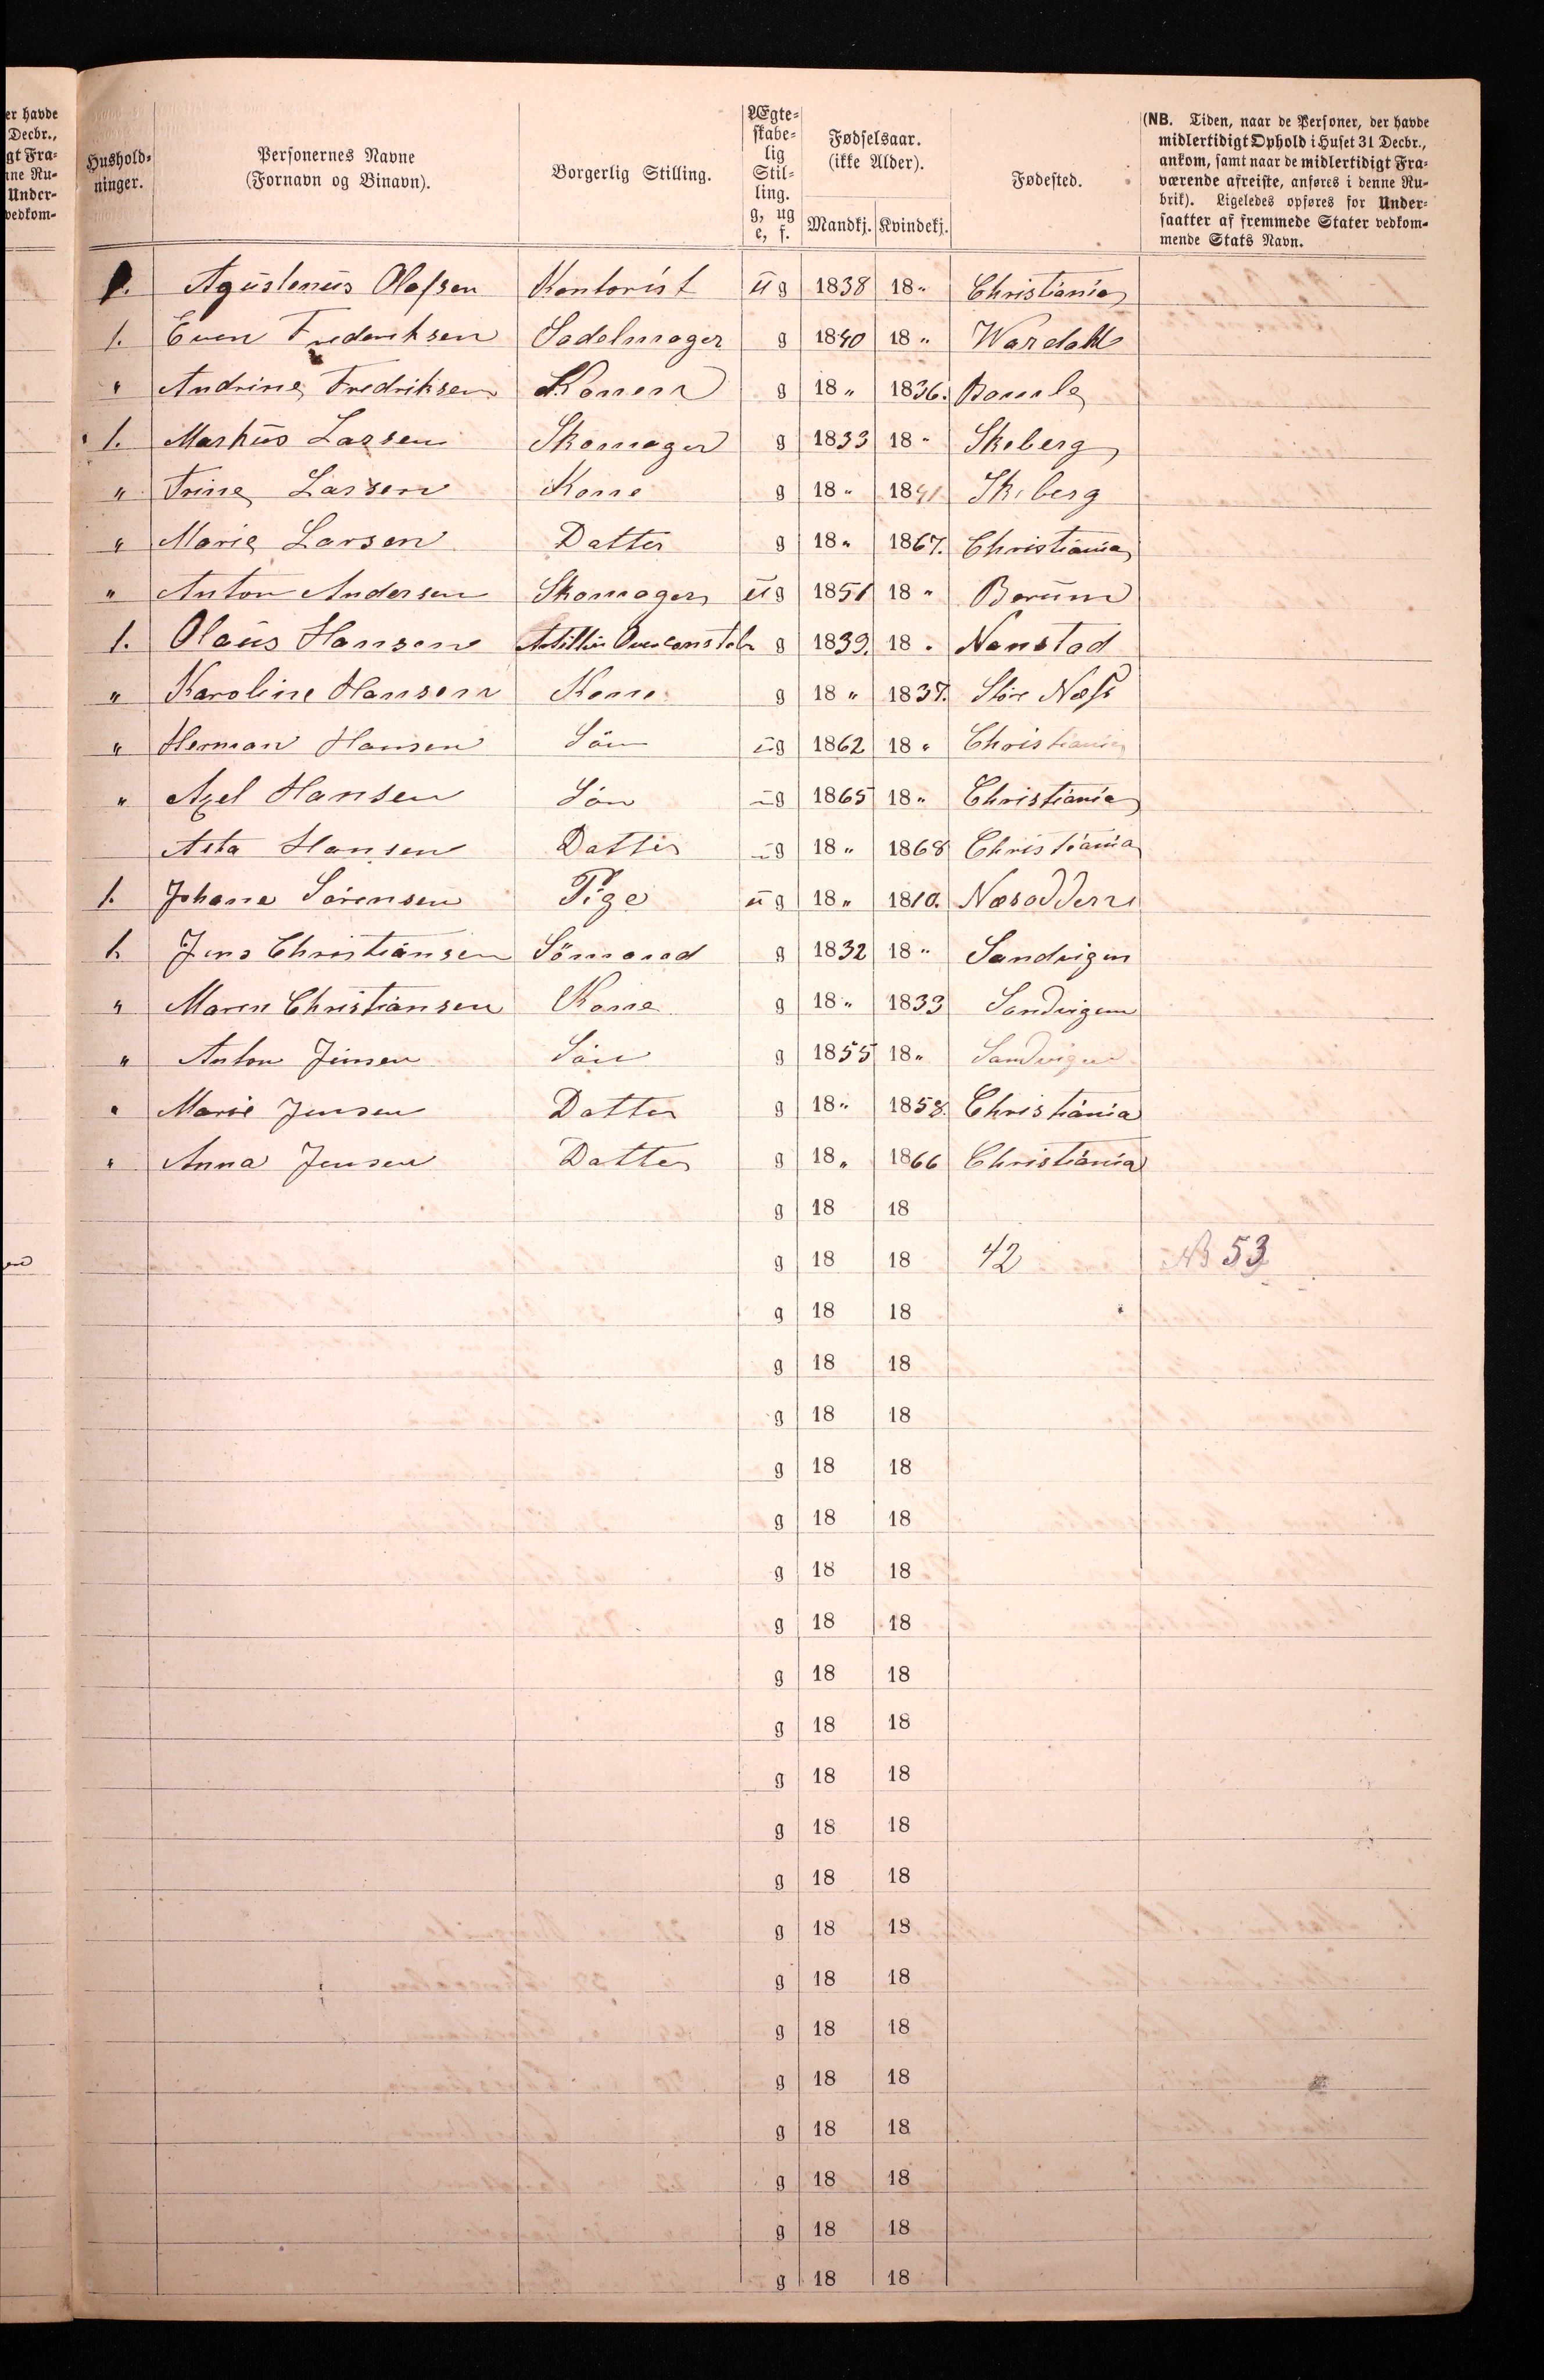 er havde
Decbr.,
gt Fra-
nne Ru-
Under-
vedkom-
Hushold-
ninger.
Personernes Navne
(Fornavn og Binavn).
Borgerlig Stilling.
Ægte-
skabe-
lig
Stil-
ling.
g, ug
e, f.
Fødselsaar.
(ikke Alder).
Mandkj. Kvindekj.
Fødested.
(NB. Tiden, naar de Personer, der havde
midlertidigt Ophold i Huset 31 Decbr.,
ankom, samt naar de midlertidigt Fra-
værende afreiste, anføres i denne Ru-
brik). Ligeledes opføres for Under-
saatter af fremmede Stater vedkom-
mende Stats Navn.
1. Agustenus Olafsen Kontorist ug 1838 18 " Christiania
1. Even Frederiksen Sadelmager g 1840 18 " Wardahl
" Andrine Fredriksen Konen g 18 " 1836. Bamle
1. Markus Larsen Skomager g 1833 18 " Skeberg
" Trine Larsen Kone g 18 " 1841 Skiberg
" Marie Larsen Datter g 18 " 1867. Christiania
" Anton Andersen Skomager ug 1851 18 " Berum
1. Olaus Hansen Artilleri Overconstabr g 1839. 18 " Nanstad
" Karoline Hansen Kone g 18 " 1837. Store Næss
" Herman Hansen Sön ug 1862 18 " Christiania
" Axel Hansen Sön ug 1865 18 " Christiania
Asta Hansen Datter ug 18 " 1868 Christiania
1. Johana Sörensen Pige ug 18 " 1810. Næsodden
1. Jens Christiansen Sömand g 1832 18 " Sandvigen
" Maren Christiansen Kone g 18 " 1833 Sandvigen
" Anton Jensen Sön g 1855 18 " Sandvigen
" Marie Jensen Datter g 18 " 1858. Christiania
" Anna Jensen Datter g 18 " 1866 Christiania
g 18 18
g 18 18 42 No 53
g 18 18
g 18 18
g 18 18
g 18 18
g 18 18
g 18 18
g 18 18
g 18 18
g 18 18
g 18 18
g 18 18
g 18 18
g 18 18
g 18 18
g 18 18
g 18 18
g 18 18
g 18 18
g 18 18
g 18 18